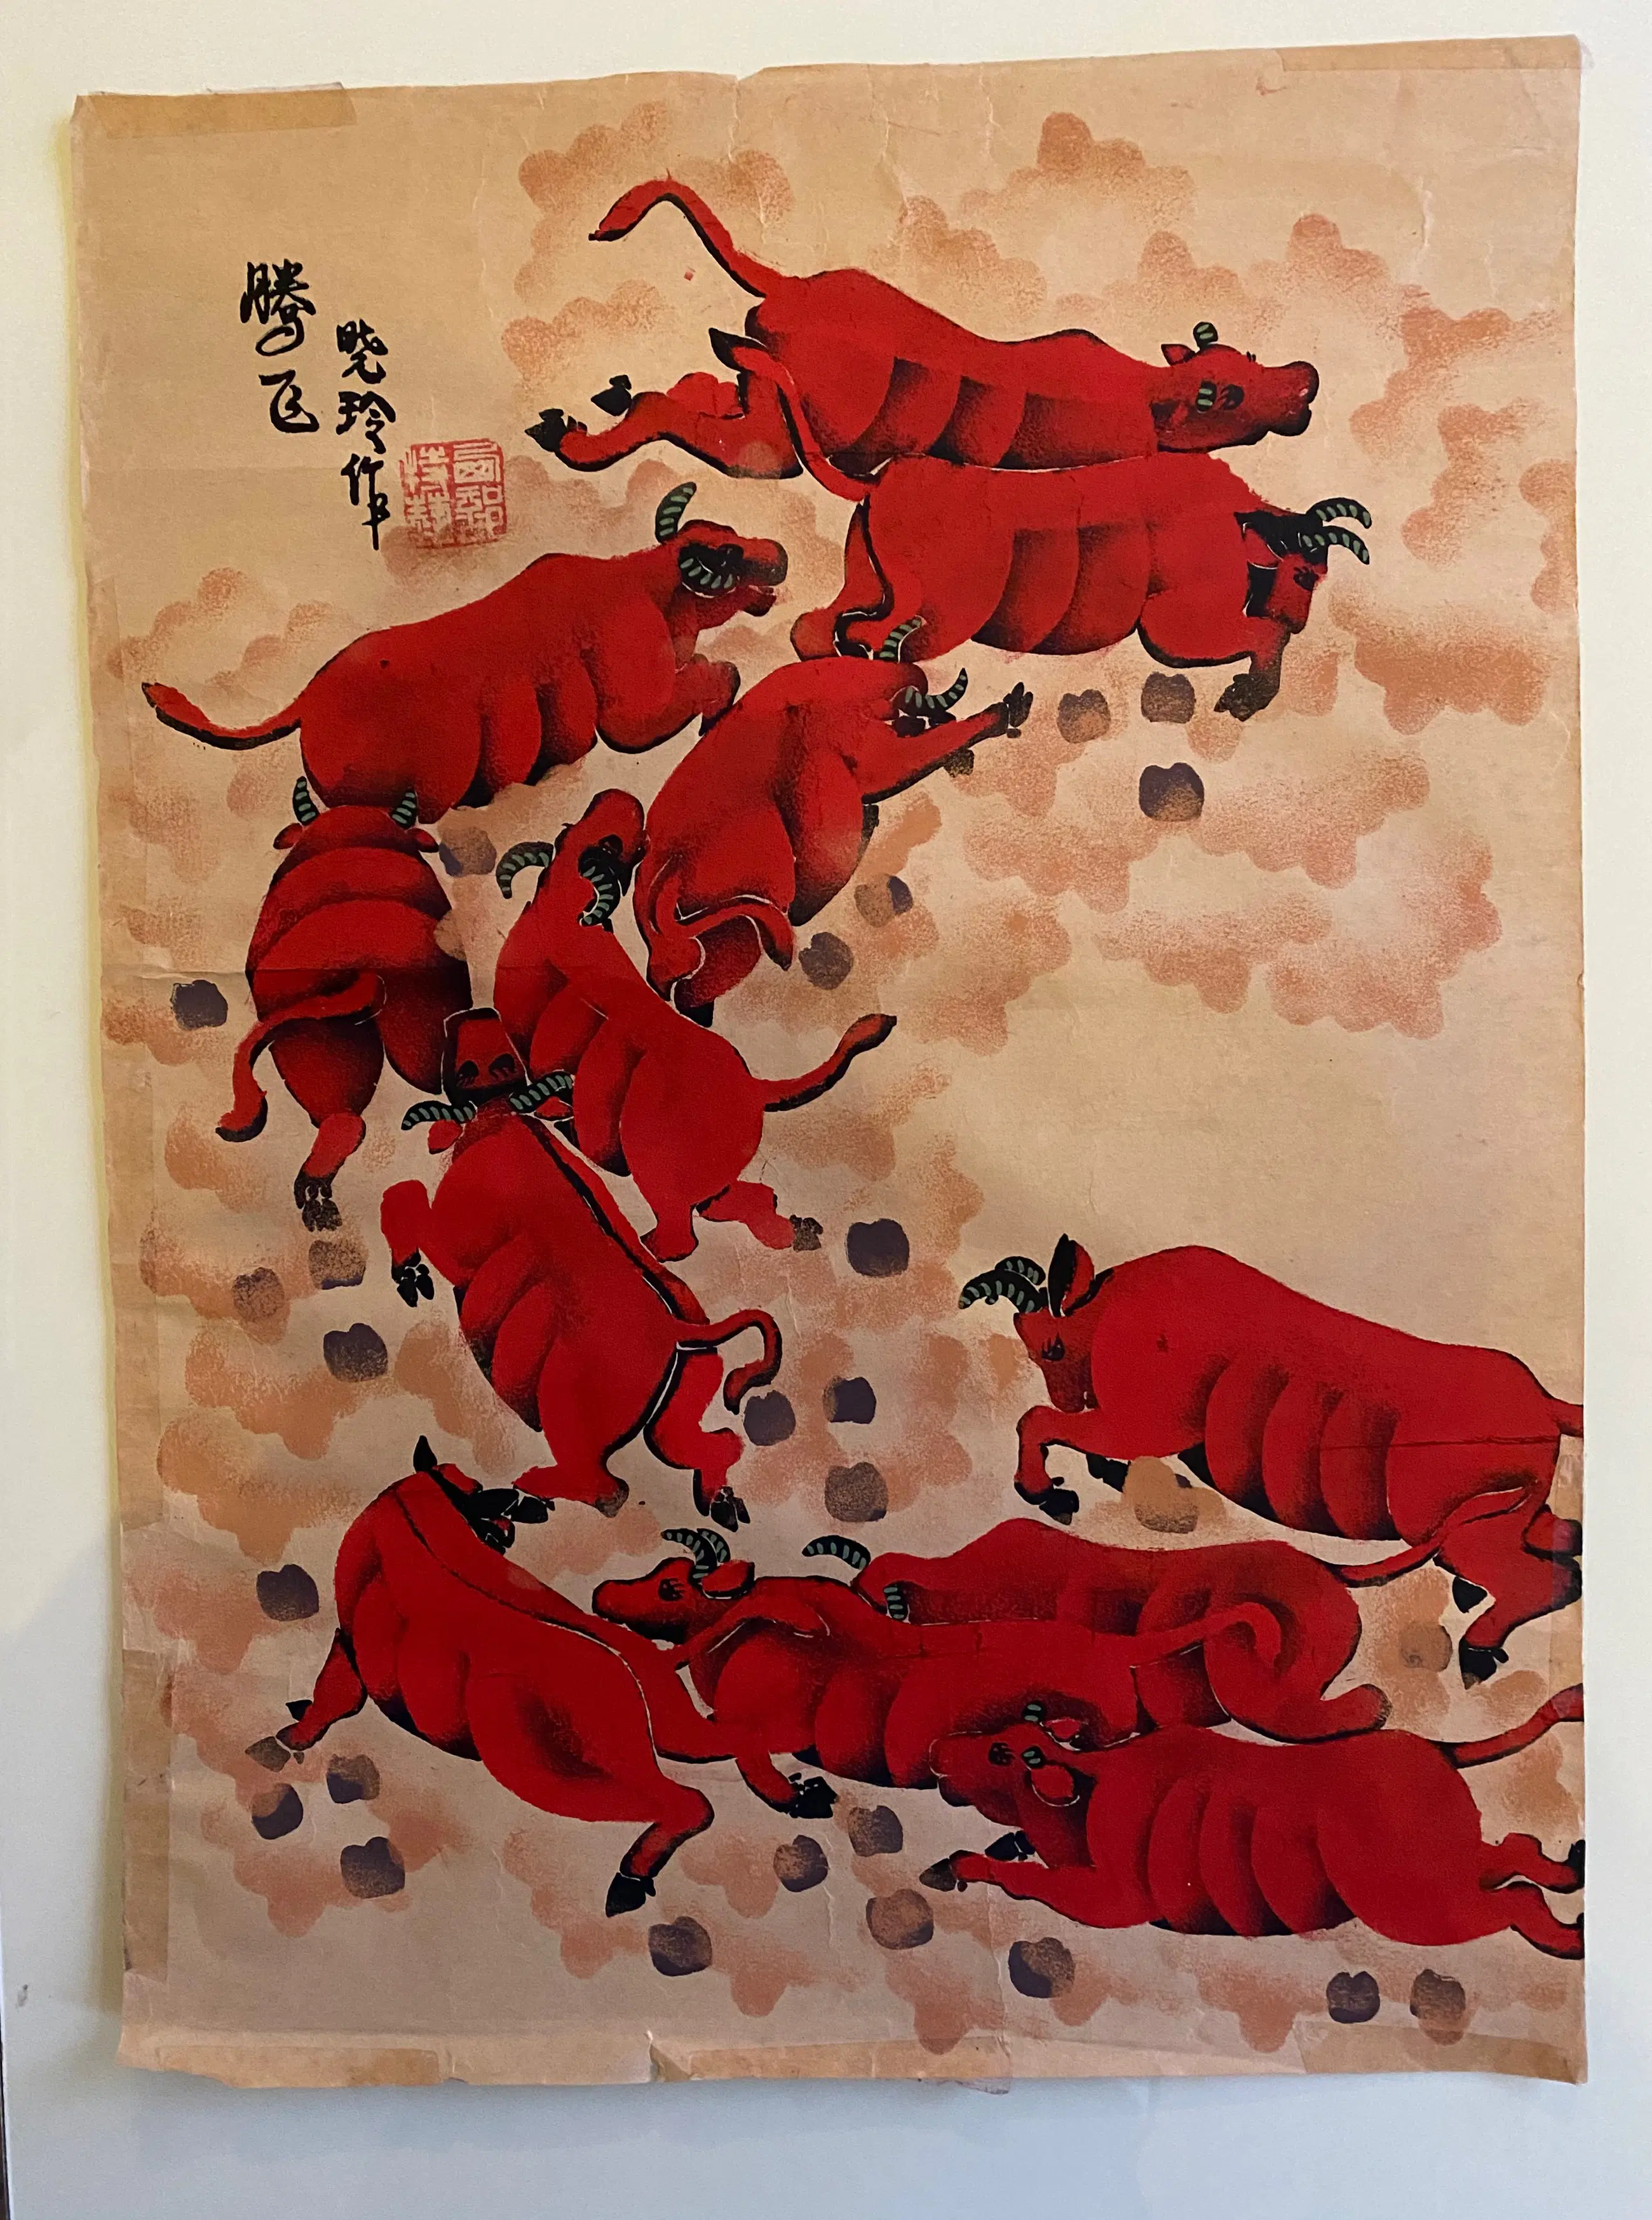 腾飞
晓玲作